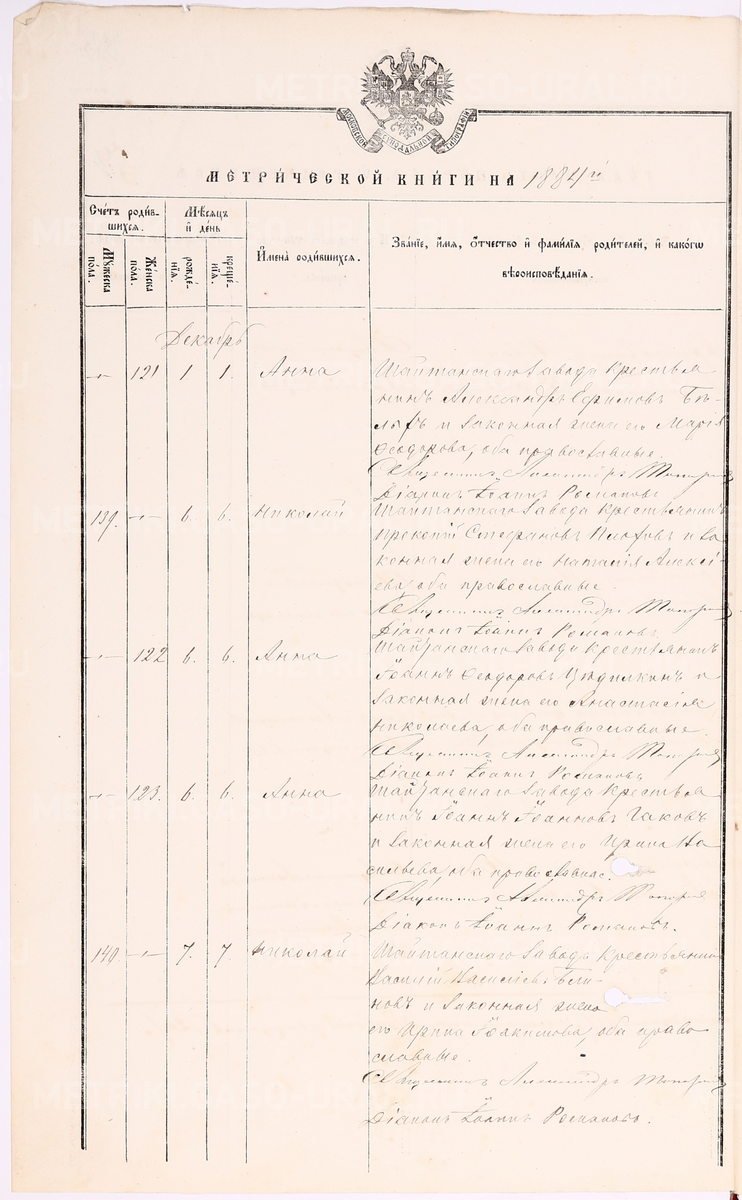 МОСКОВСКОЙ СѴНОДАЛЬНОЙ ТИПОГРАФІИ
МЕТРИЧЕСКОЙ КНИГИ НА 1884 й
Счетъ родив-
шихся.
Мѣсяцъ
и день
Имена родившихся.
Званіе, имя, отчество и фамилія родителей, и какогѡ
вѣроисповѣданія.
Мужеска
пола.
Женска
пола.
рожде-
нія.
креще-
нія.
Декабрь
121 1 1. Анна Шайтанскаго завода крестья
нинъ Александръ Ефимовъ Бѣ-
и законная жена его Марія
Феодорова, оба православные.
Священникъ Александръ
Діаконъ Іоаннъ Романовъ
139. 6. 6. Николай Шайтанскаго завода крестьянинъ
Прокопій Стефановъ и за
конная жена его Наталія Алексі-
ева, оба православные.
Священникъ Александръ
Діаконъ Іоаннъ Романовъ
122 6. 6. Анна Шайтанскаго завода крестьянинъ
Іоаннъ Феодоровъ и
законная жена его Анастасія
Николаева, оба православные.
Священникъ Александръ
Діаконъ Іоаннъ Романовъ
123. 6. 6. Анна Шайтанскаго завода крестья
нинъ Іоаннъ Іоанновъ
и законная жена его Ирина Ва
сильева, оба православные.
Священникъ Александръ
Діаконъ Іоаннъ Романовъ.
140 7. 7. Николай Шайтанскаго завода крестьянинъ
Василій Василіевъ
новъ и законная жена
его Ирина Іоакимова, оба право
славные.
Священникъ Александръ
Діаконъ Іоаннъ Романовъ.